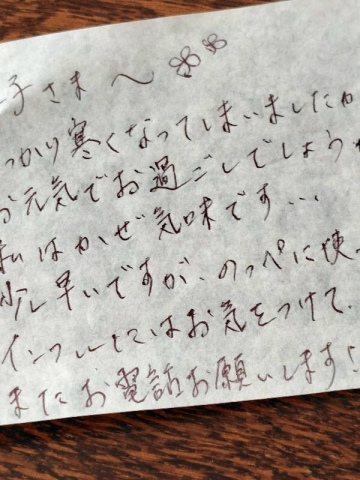 子さま～
っかり寒くなってしまいましたが
お元気でお過ごしでしょうか
私はかぜ気味です…
少し早いですが、のっぺに使っ
インフルにはお気をつけて.
またお電話お願いします!